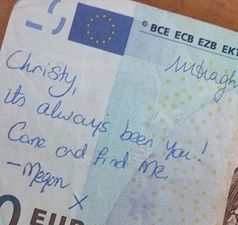 © BCE ECB EZB EKT
Christy,
its always been you!
Come and find me.
-Megan X
0 EUR